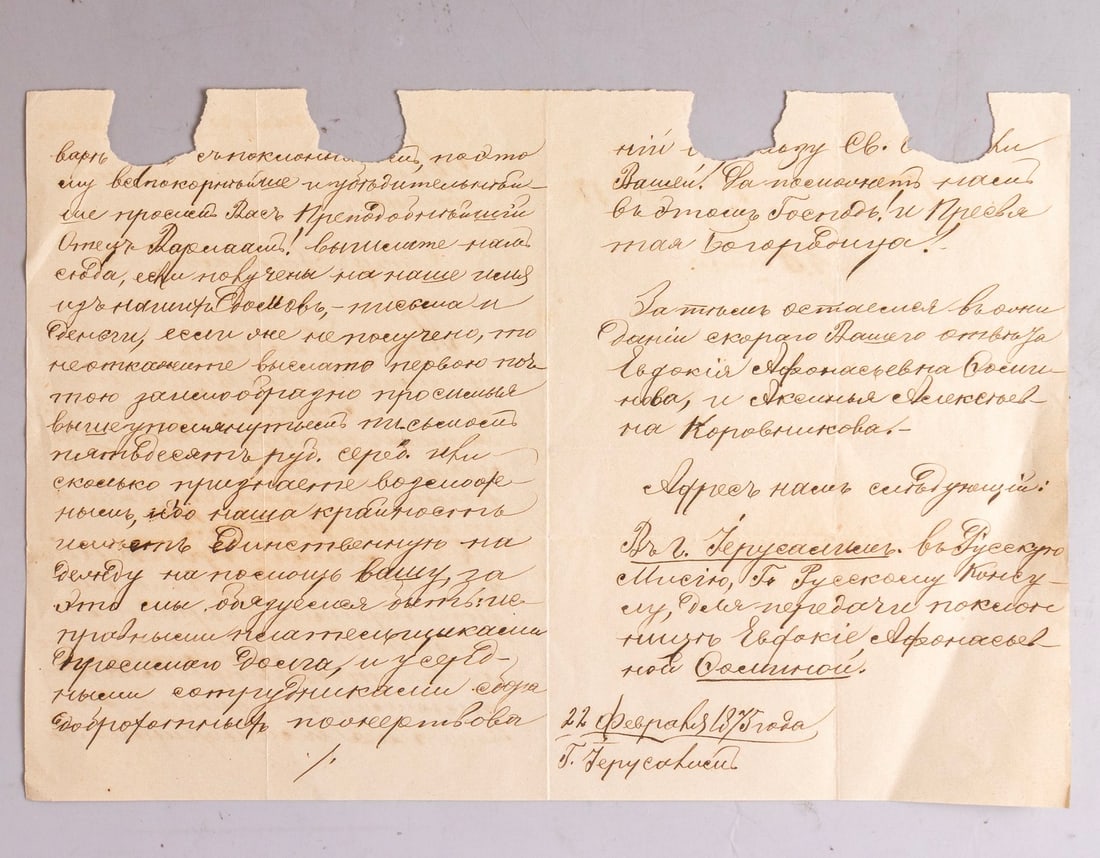 варъ съ поклоны поэто
му всепокорнѣйше и убѣдительнѣй-
ше просимъ Васъ Преподобнѣйшій
Отецъ Варлаамъ! вышлите намъ
сюда, если получены на наше имя
изъ нашихъ Домовъ, - письма и
деньги, если же не получено, то
не откажите выслать первою поч-
тою заимообразно просимыя
вышеупомянутымъ письмомъ
пятьдесятъ руб. сереб. или
сколько признаете возмож-
нымъ, ибо наша крайность
имѣетъ Единственную на
дежду на помощь вашу, за
это мы обязуемся быть ис-
правными плательщиками
просимаго Долга, и усерд-
ными сотрудниками сбора
доброхотныхъ пожертвова
./.
ній Св.
Вашей! Да поможетъ намъ
въ этомъ Господь! и Пресвя
тая Богородица!
За тѣмъ остаемся въ ожи
даніи скораго Вашего отвѣта
Евдокія Афонасьевна Соми-
нова, и Аксинья Алексѣев-
на Коровникова. -
Адресъ намъ слѣдующій:
Въ г. Іерусалимъ. въ Русскую
Мисію, Гⁿ Русскому Консу-
лу, для передачи поклон
ницѣ Евдокіе, Афонасьев-
ной Соминой.
22 Февраля 1875 года
Г. Іерусалимъ